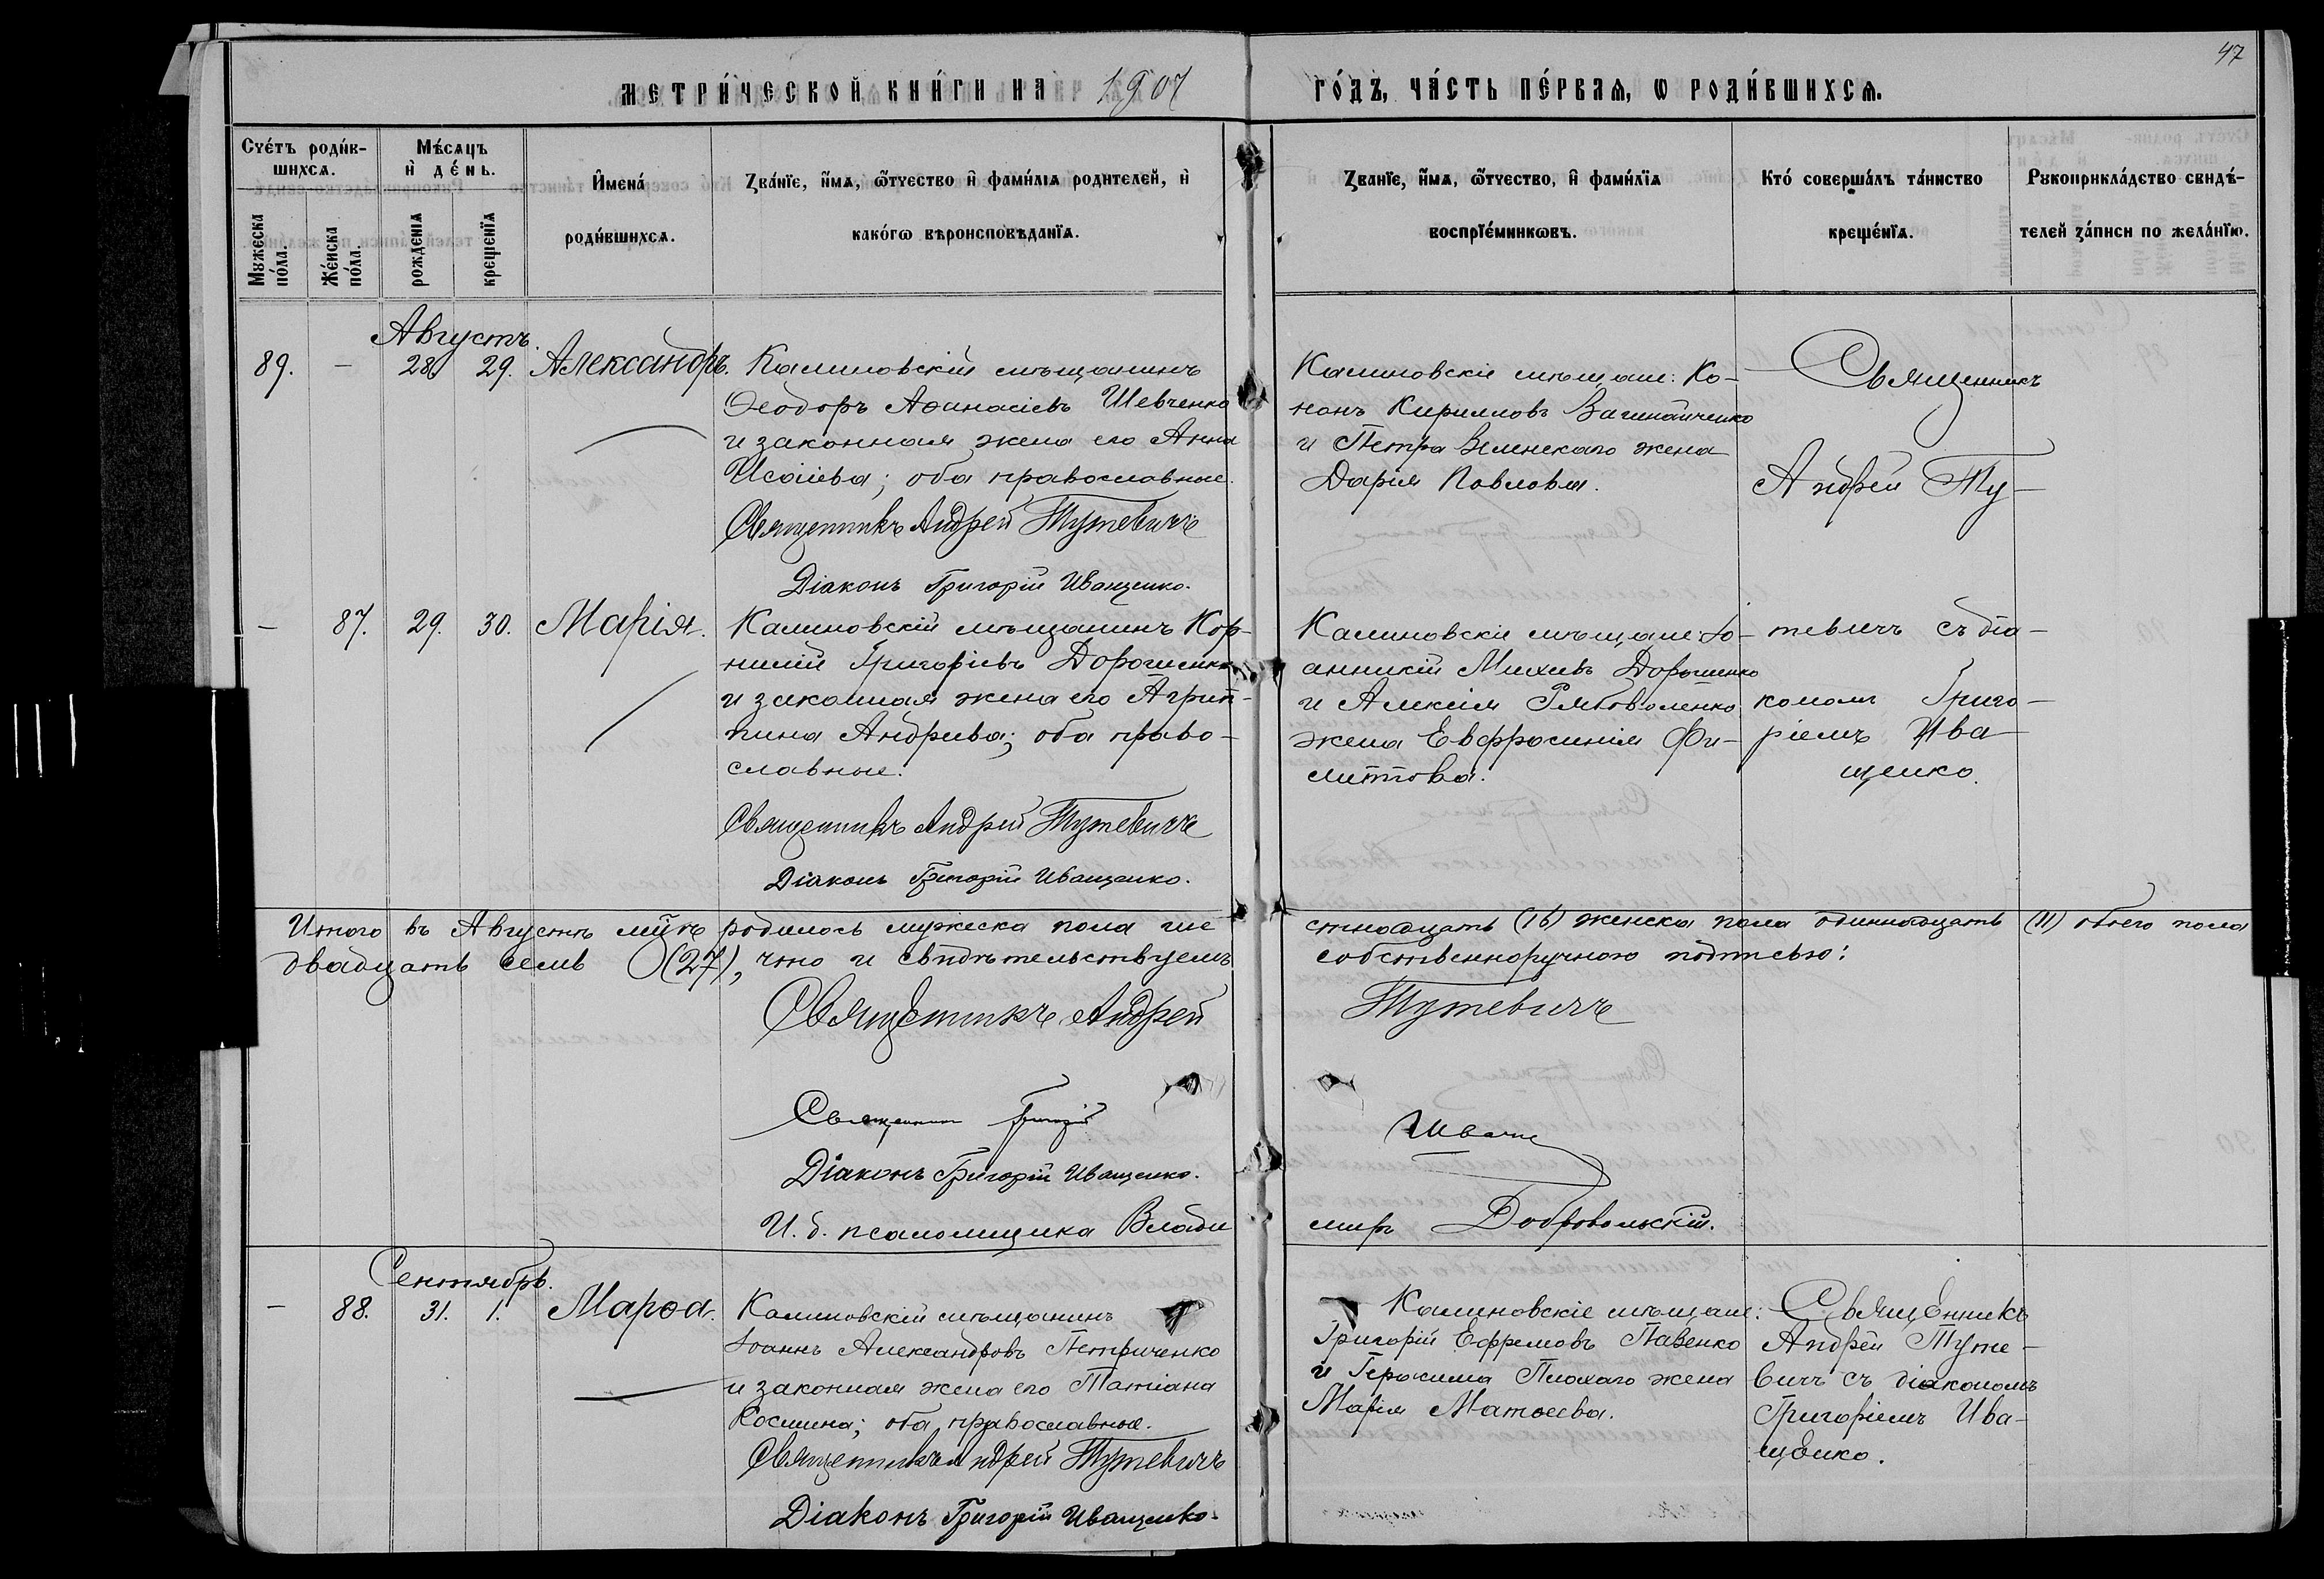 47
МЕТРИ́ЧЕСКОЙ КНИ́ГИ НА 1907 ГО́ДЪ, ЧА́СТЬ ПЕ́РВАѦ, Ѡ РОДИ́ВШИХСѦ.
Сче́тъ роди́в-
шихсѧ.
Мꙋжеска
по́ла.
Же́нска
по́ла.
Мѣ́сѧцъ
и҆ де́нь.
рожденїѧ
крещенїѧ
И҆мена́
роди́вшихсѧ.
Зва́нїе, и҆́мѧ, ѻ҆́тчество и҆ фами́лїѧ родителей, и҆
како́гѡ вѣроисповѣданїѧ.
Зва́нїе, и҆́мѧ, ѻ҆́тчество, и҆ фами́лїѧ
воспрїе́мникѡвъ.
Кто́ соверша́лъ та́инство
креще́нїѧ.
Рꙋкоприкла́дство свидѣ́-
телей за́писи по жела́нїю.
Августъ.
89. — 28. 29. Александръ.
Калиновскій мѣщанинъ
Ѳеодоръ Аѳанасіевъ Шевченко
и законная жена его Анна
Исаіева; оба православные.
Священникъ Андрей Тутевичъ
Діаконъ Григорій Иващенко.
Калиновскіе мѣщане: Ко-
нонъ Кирилловъ
и Петра жена
Дарія Павлова.
Священникъ
Андрей Ту-
— 87. 29. 30. Марія.
Калиновскій мѣщанинъ Кор-
нилій Григоріевъ Дорошенко
и законная жена его Агрип-
пина Андреева; оба право-
славные.
Священникъ Андрей Тутевичъ
Діаконъ Григорій Иващенко.
Калиновскіе мѣщане: Іо-
анникій Михеевъ Дорошенко
и Алексія Рябоволенко
жена Евфросинія Фи-
липпова.
тевичъ съ діа-
кономъ Григо-
ріемъ Ива-
щенко.
Итого въ Августѣ м҃цѣ родилось мужеска пола ше
стнадцать (16) женска пола одиннадцать (11) обоего пола
двадцать семь (27), что и свидѣтельствуемъ
собственноручною подписью:
Священникъ Андрей Тутевичъ
Священникъ Григорій Иваще
Діаконъ Григорій Иващенко.
И. д. псаломщика Влади
миръ Добровольскій.
Сентябрь.
— 88. 31. 1. Марѳа.
Калиновскій мѣщанинъ
Іоаннъ Александровъ Петриченко
и законная жена его Татіана
Космина; оба православные.
Священникъ Андрей Тутевичъ
Діаконъ Григорій Иващенко.
Калиновскіе мѣщане:
Григорій Ефремовъ Павенко
и Герасима Плохаго жена
Марія Матѳеева.
Священникъ
Андрей Туте-
вичъ съ діакономъ
Григоріемъ Ива-
щенко.